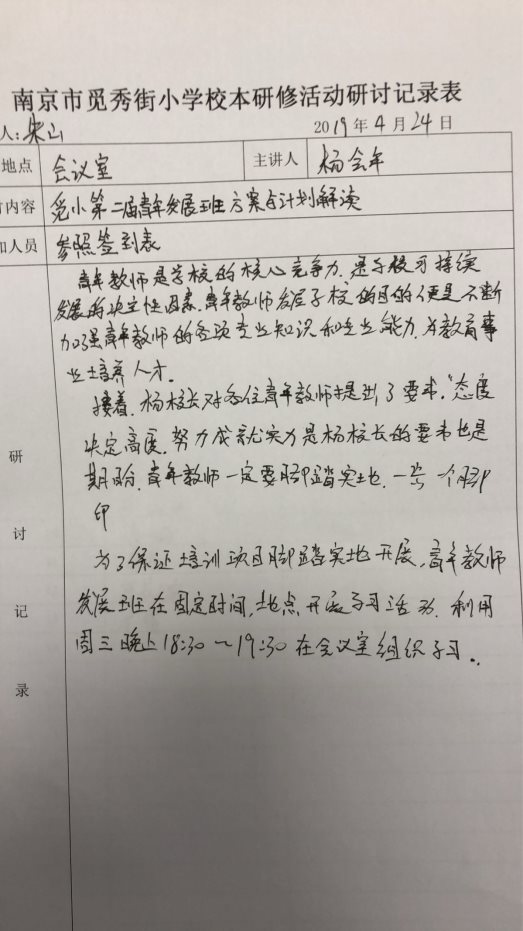 南京市觅秀街小学校本研修活动研讨记录表
人:朱山 2019年4月24日
地点 会议室 主讲人 杨会年
内容 觅小第二届青年发展班方案与计划解读
人员 参照签到表
青年教师是学校的核心竞争力,是学校可持续
发展的决定性因素,青年教师发展学校的目的便是不断
加强青年教师的各项专业知识和专业能力,为教育事
业培养人才。
接着,杨校长对各位青年教师提出了要求,“态度
决定高度,努力成就实力是杨校长的要求也是
期盼,青年教师一定要脚踏实地,一步一个脚
印
为了保证培训项目脚踏实地开展,青年教师
发展班在固定时间,地点,开展学习活动,利用
周三晚上18:30~19:30在会议室组织学习。
研
讨
记
录